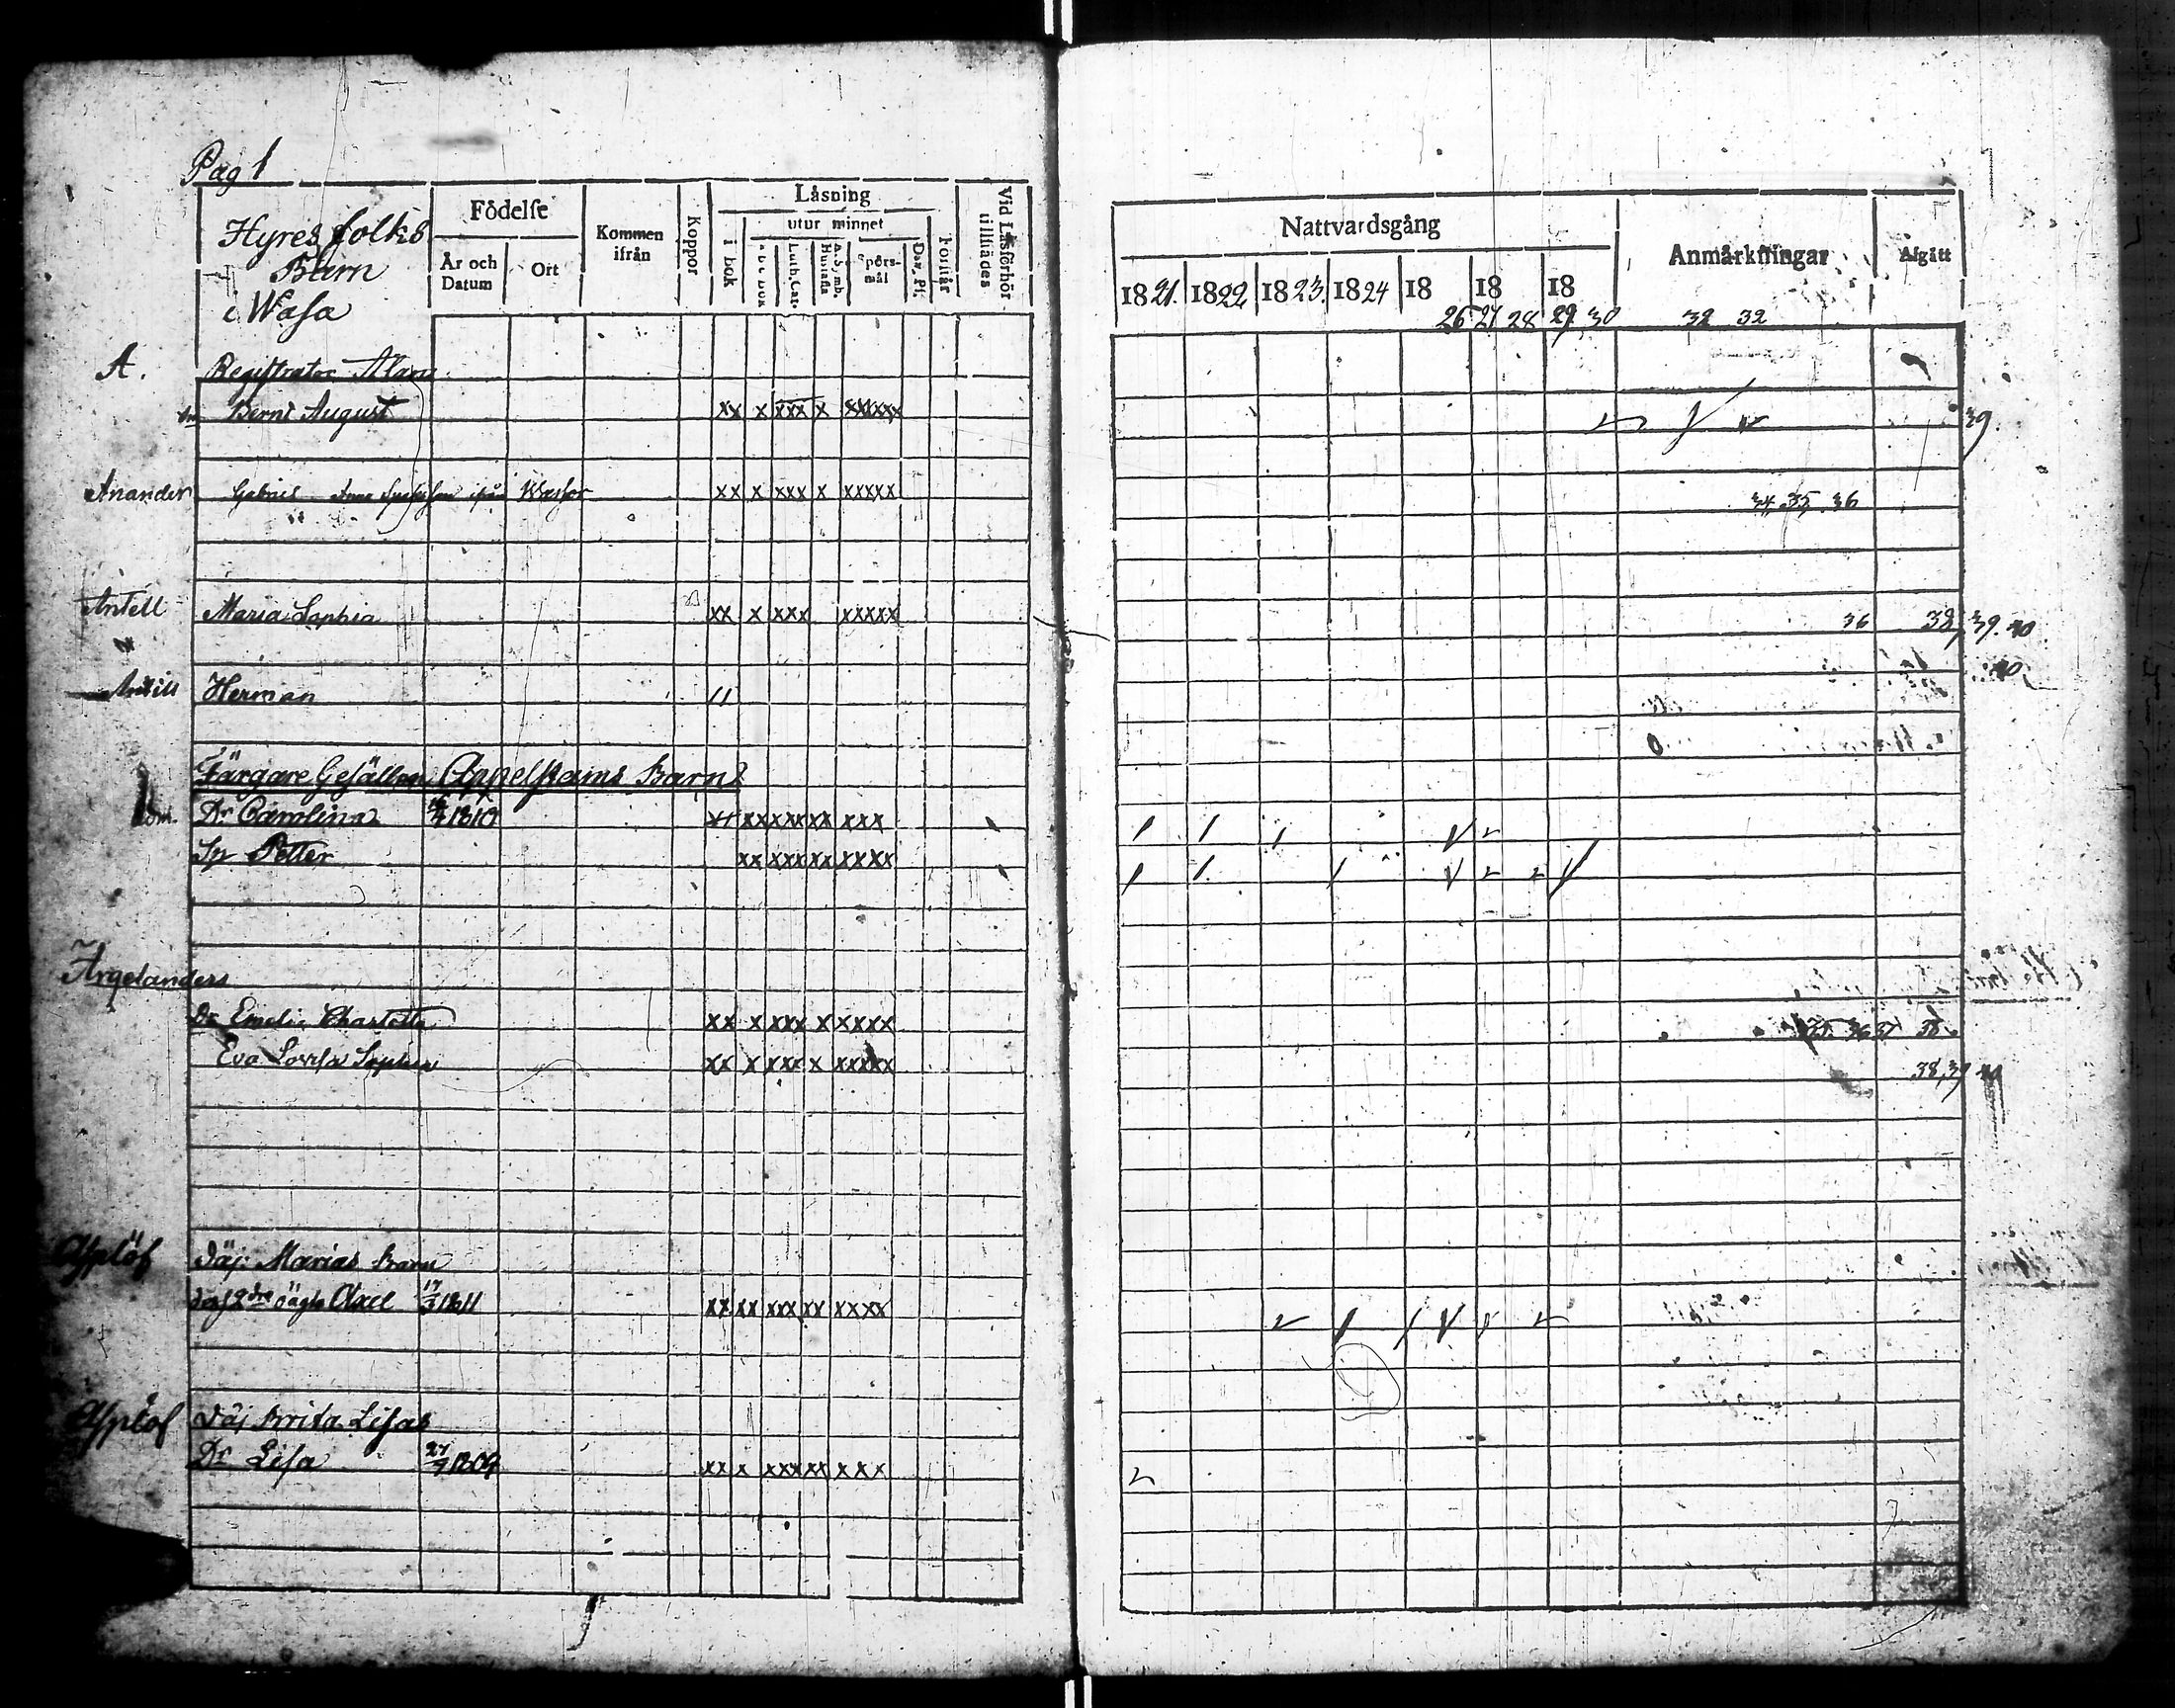 Pag 1
Hyres folks
Barn
i Wasa
Födelse
År och Datum
Ort
Kommen ifrån
Koppor
Läsning
utur minnet
i bok
Luth. Cat.
Spörs-mål
Dav. Ps.
Förstår
Vid Läsförhör tillstädes
Nattvardsgång
1821. 1822 1823. 1824 18 18 18
26 27 28 29, 30 32 32
Anmärkningar
Afgått
A. Registrator Alan
Bernt August xx x xxx x xxxxxx 39.
Anander Gabriel ifrån xx x xxx x xxxxx 34, 35, 36
Antell Maria Sophia xx x xxx xxxxx 36 38, 39. 40
Antell Herman 11 40
Färgare Gesällen Appelstams Barn
Dr Carolina 1810 xx xxxxxx xxx
Sr Petter xx xxx xx xxxx
Argelanders
Dr Emelie Charlotta xx x xxx x xxxx 35. 36 37 38
Eva Lovisa Sophia xx x xxx x xxxxx 38, 39 40
Asplöf Däj: Maria's Barn
Axel 17/3 1811 xx xx xxx xx xxxx
Asplöf Däj Brita Lisas
Dr Lisa 27/7 1804 xx x xxxxx xxx